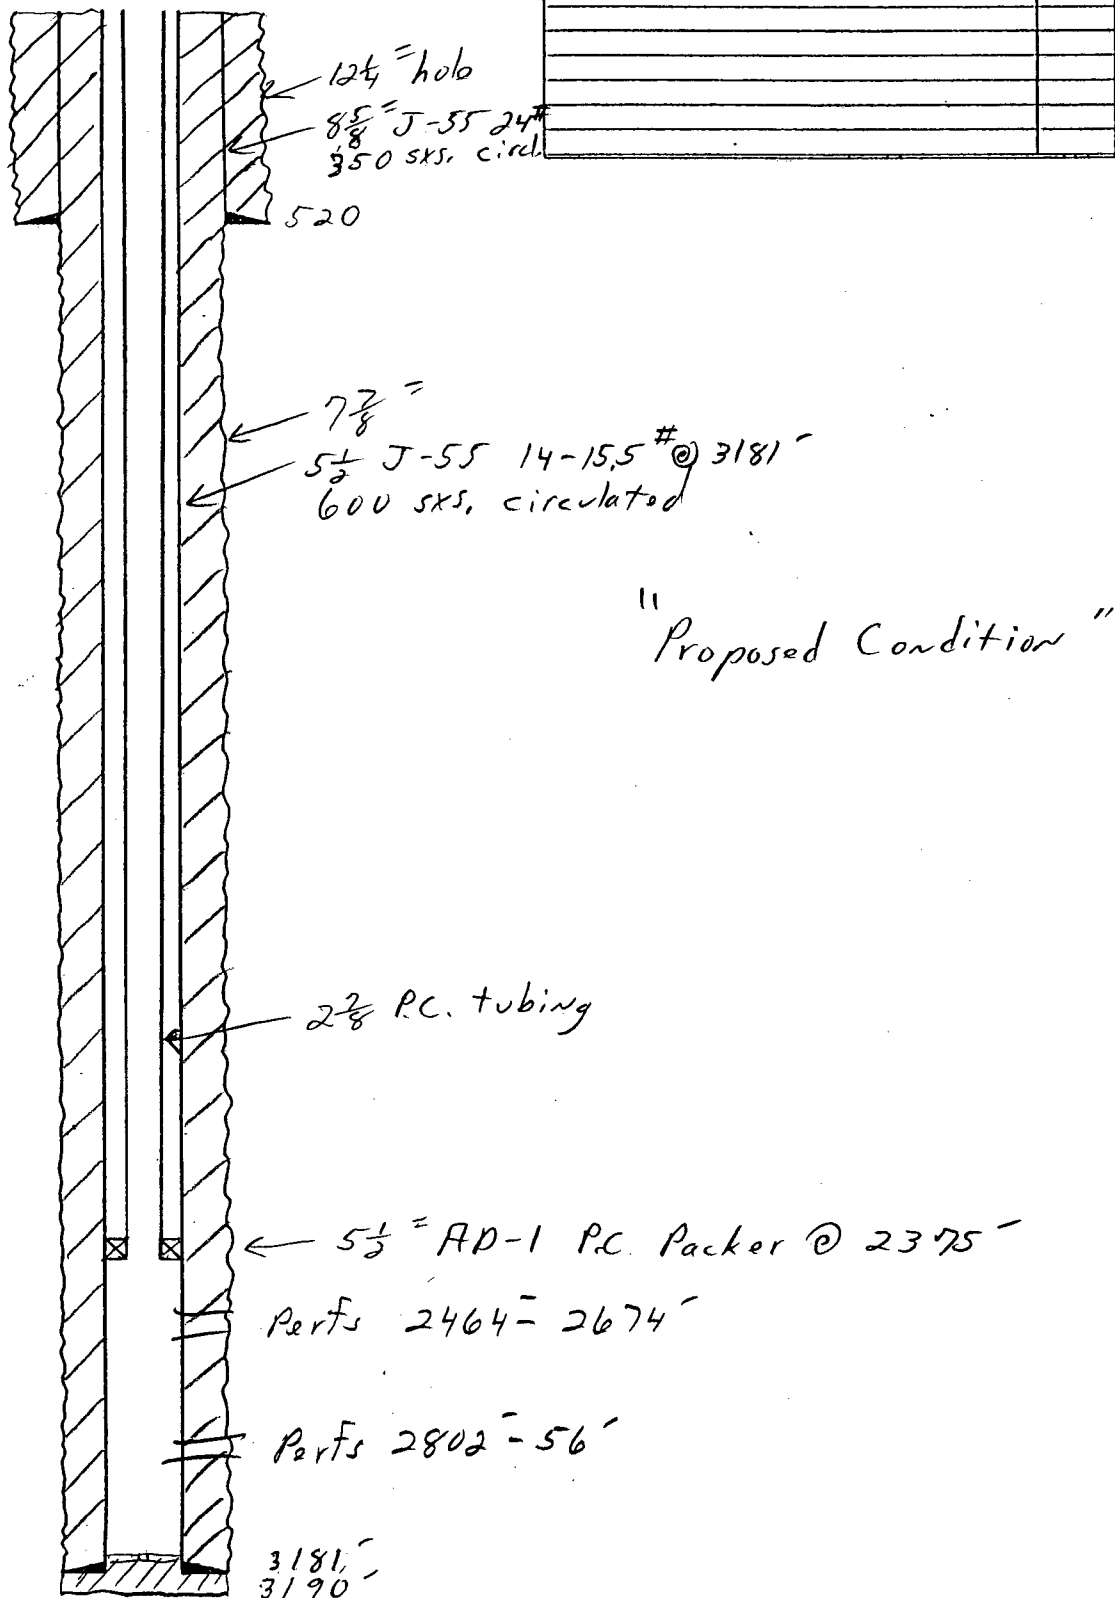 12 1/4" hole
8 5/8" J-55 24#
350 sxs. circl.
520
7 7/8"
5 1/2 J-55 14-15.5# @ 3181'
600 sxs. circulated
"Proposed Condition"
2 7/8 P.C. tubing
5 1/2" AD-1 P.C. Packer @ 2375'
Perfs 2464'-2674'
Perfs 2802'-56'
3181'
3190'